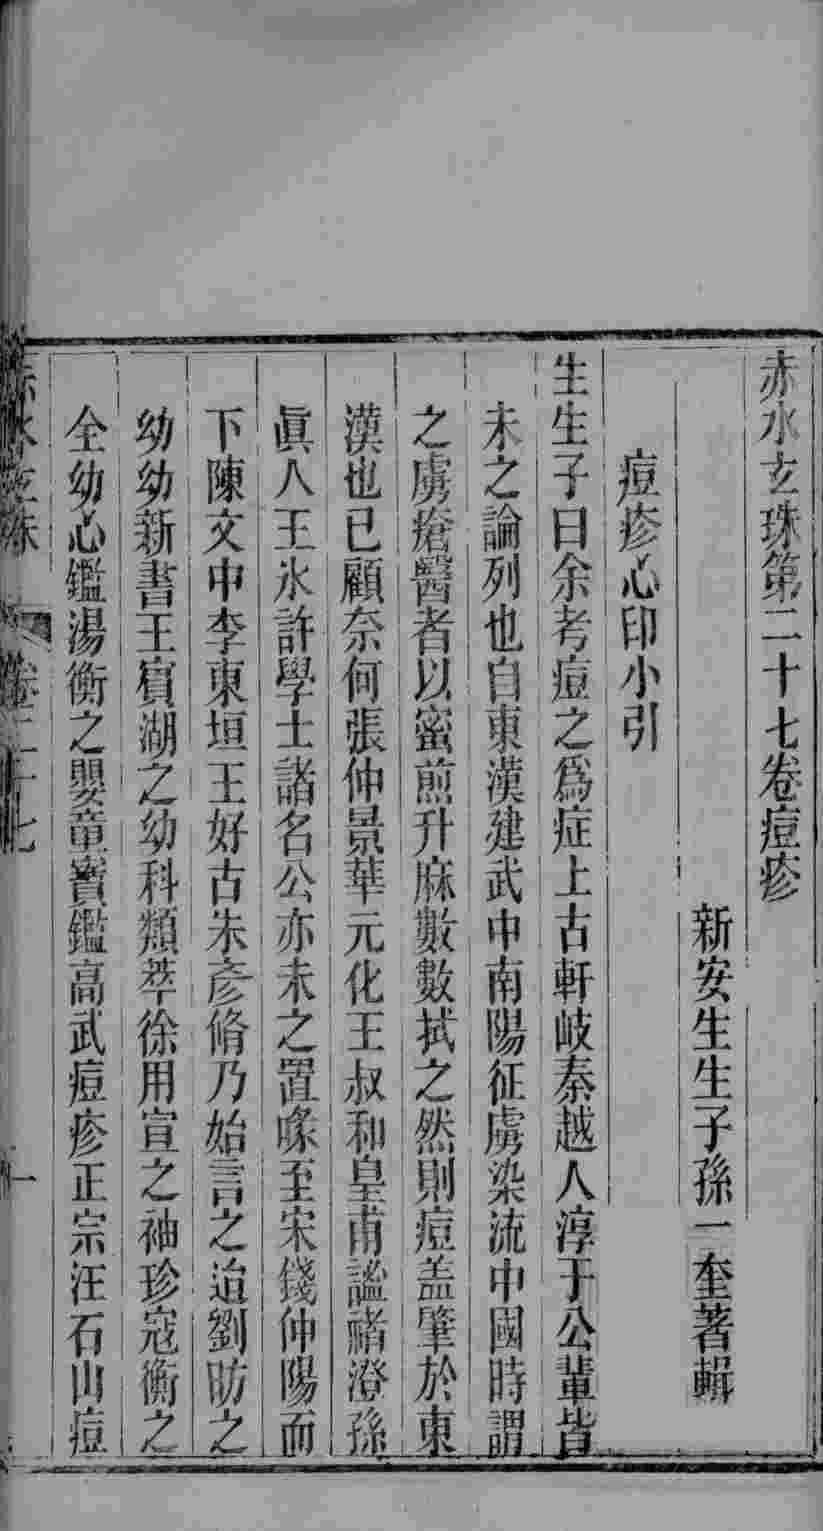 赤水玄珠第二十七卷痘疹
新安生生子孫一奎著輯
痘疹心印小引
生生子曰余考痘之爲症上古軒岐秦越人淳于公輩皆
未之論列也自東漢建武中南陽征虜染流中國時謂
之虜瘡醫者以蜜煎升麻數數拭之然則痘蓋肇於東
漢也已顧奈何張仲景華元化王叔和皇甫謐褚澄孫
眞人王氷許學士諸名公亦未之置喙至宋錢仲陽而
下陳文中李東垣王好古朱彥脩乃始言之迨劉昉之
幼幼新書王賓湖之幼科類萃徐用宣之袖珍寇衡之
全幼心鑑湯衡之嬰童寶鑑高武痘疹正宗汪石山痘
赤水玄珠 卷二十七 一